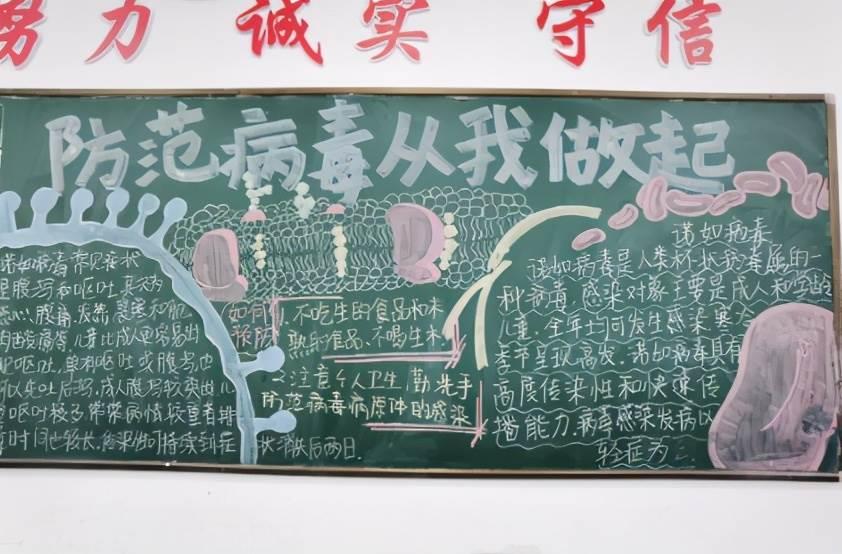 努力 诚实 守信
防范病毒从我做起
诺如病毒常见症状
是腹泻和呕吐,其次为
恶心,腹痛,发热,畏寒和肌
肉酸痛等,儿童比成人更容易出
现呕吐,单有呕吐或腹泻也
可以先吐后泻,成人腹泻较突出,儿
呕吐较多
时间也较长,感染性可持续到症
状消失后两日.
如何
预防
不吃生的食品和未
熟的食品,不喝生水
二注意个人卫生,勤洗手
防范病毒病原体的感染
诺如病毒
诺如病毒是人类杯状病毒属的一
种病毒,感染对象主要是成人和学龄
儿童,全年均可发生感染,寒冷
季节呈现高发,诺如病毒具有
高度传染性和快速传
播能力,病毒感染发病以
轻症为